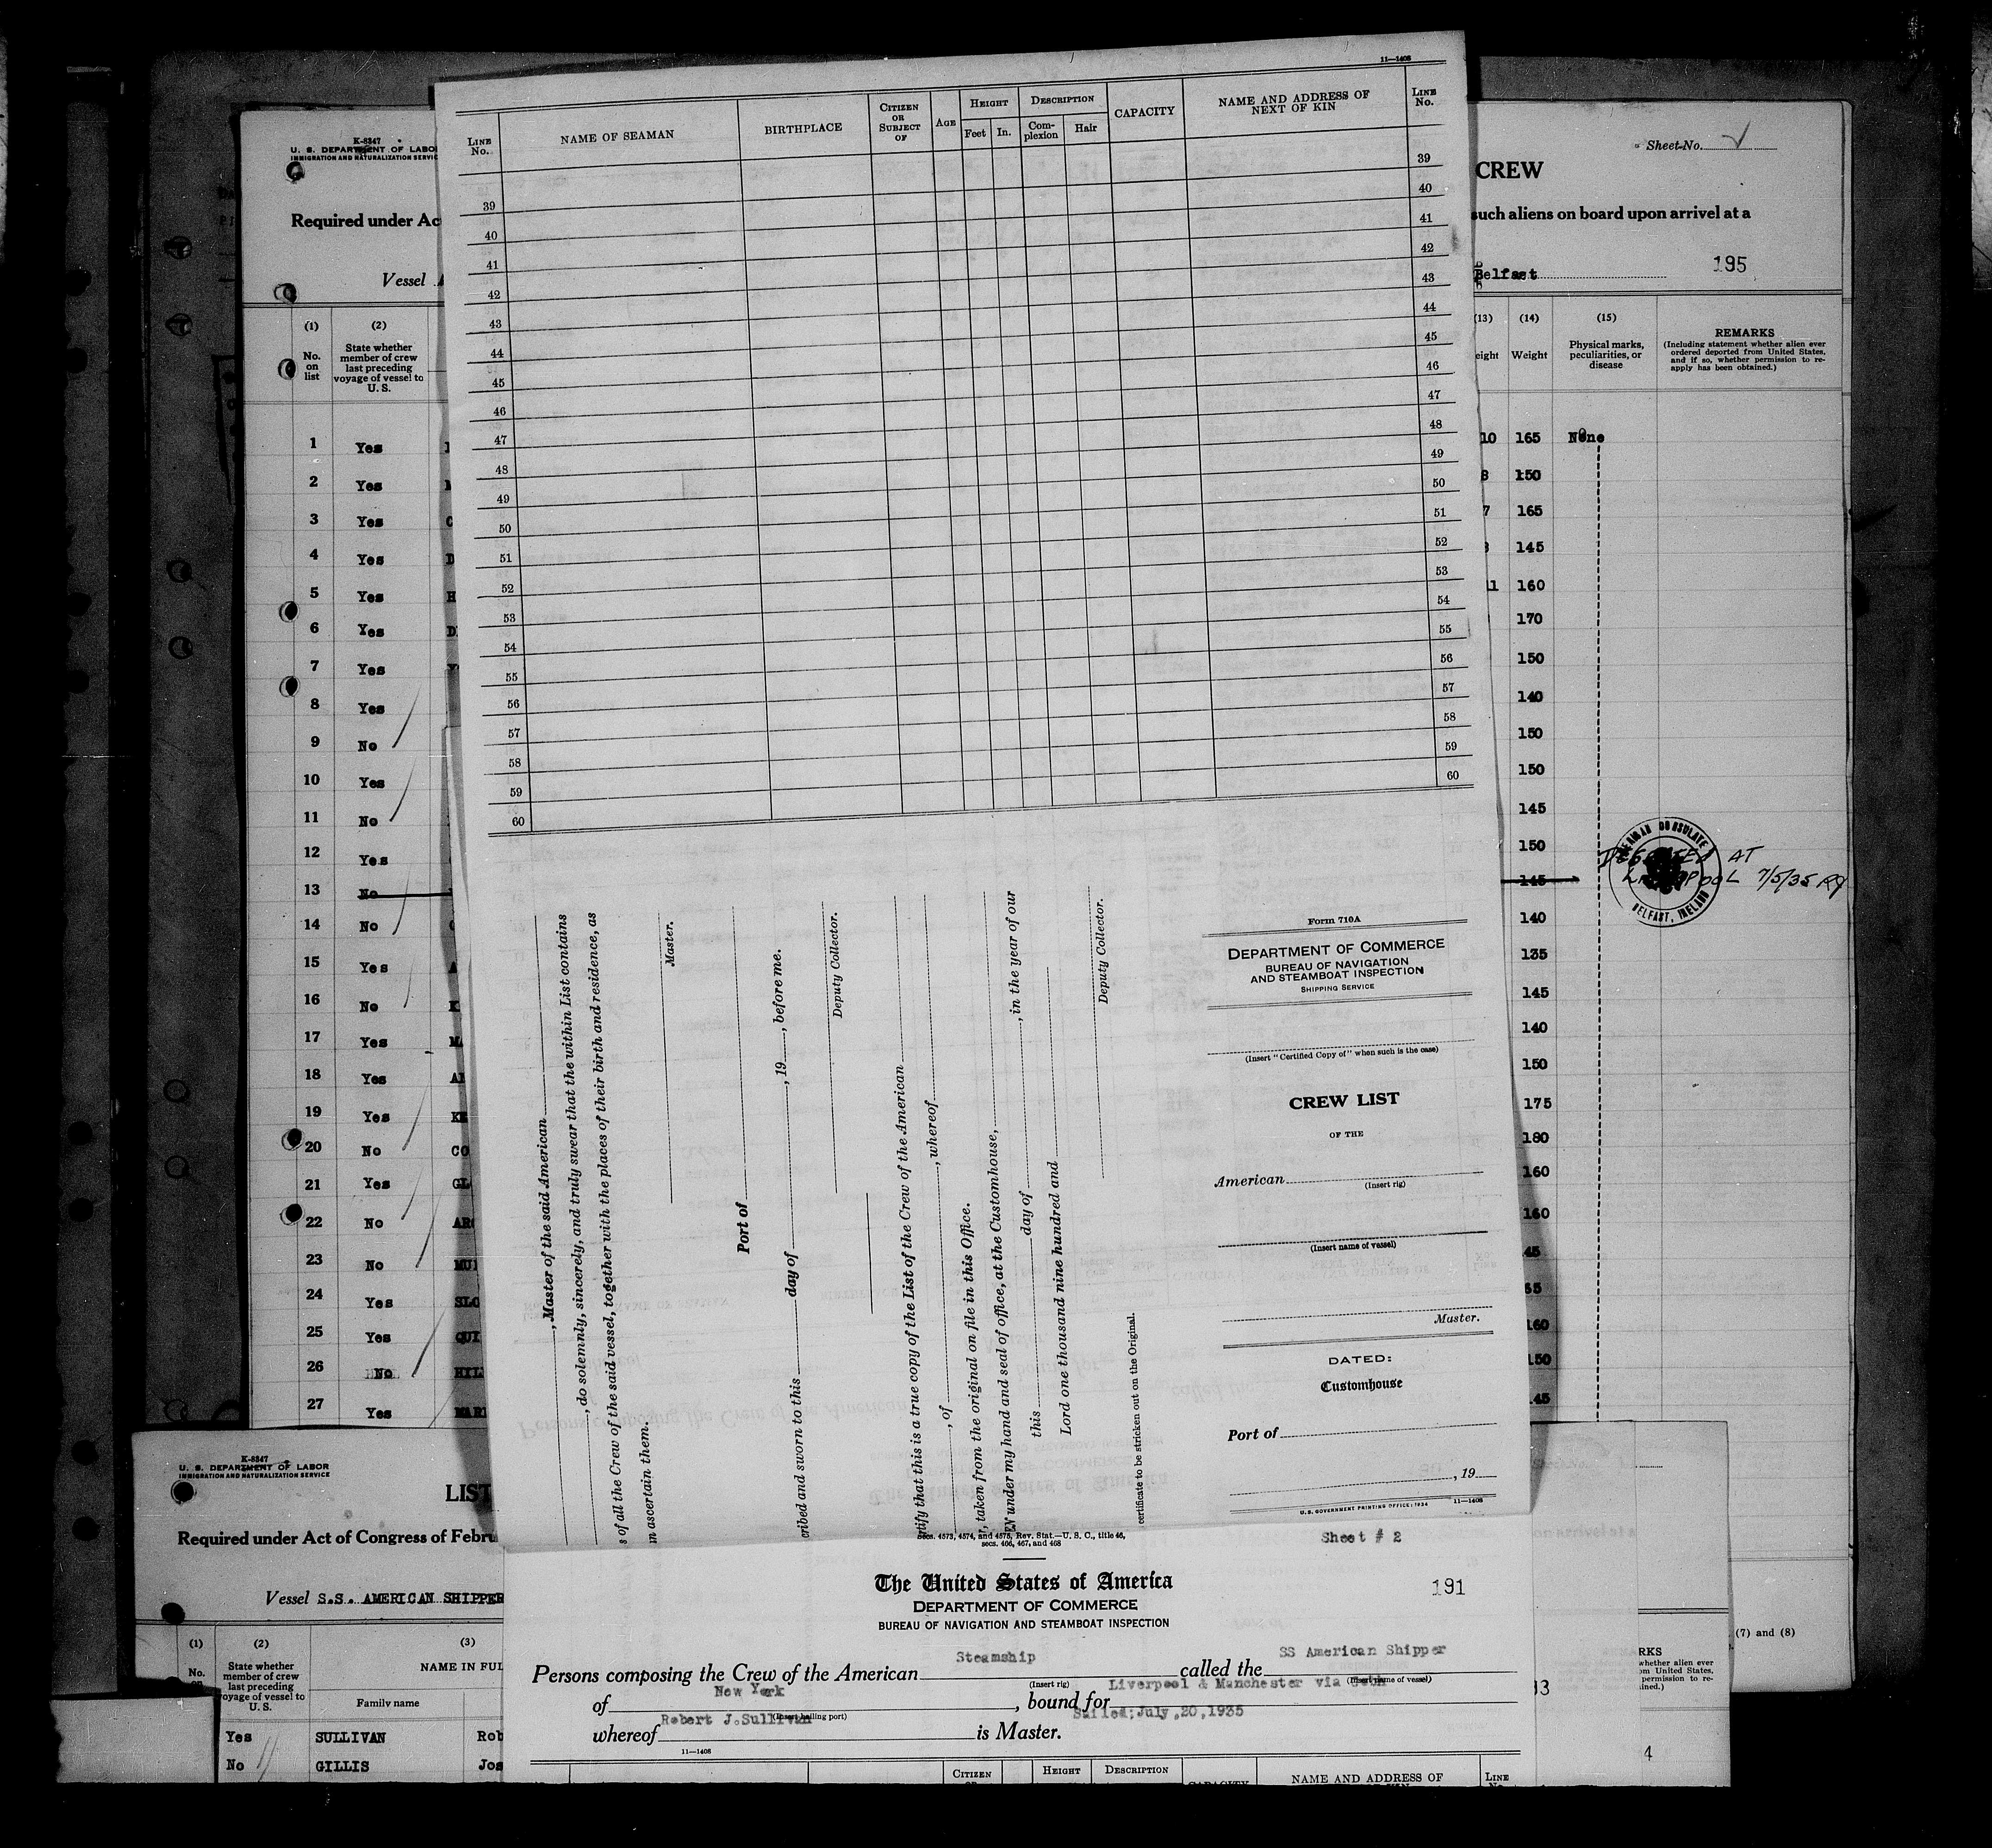 11—1408
LINE No.
NAME OF SEAMAN
BIRTHPLACE
CITIZEN OR SUBJECT OF
AGE
HEIGHT
Feet
In.
DESCRIPTION
Complexion
Hair
CAPACITY
NAME AND ADDRESS OF NEXT OF KIN
LINE No.
39 39
40 40
41 41
42 42
43 43
44 44
45 45
46 46
47 47
48 48
49 49
50 50
51 51
52 52
53 53
54 54
55 55
56 56
57 57
58 58
59 59
60 60
, Master of the said American
, do solemnly, sincerely, and truly swear that the within List contains
of all the Crew of the said vessel, together with the places of their birth and residence, as
ascertain them.
Master.
Port of
cribed and sworn to this day of , 19 , before me.
Deputy Collector.
tify that this is a true copy of the List of the Crew of the American
, of , whereof
, taken from the original on file in this Office.
under my hand and seal of office, at the Customhouse,
this day of , in the year of our
Lord one thousand nine hundred and
Deputy Collector.
certificate to be stricken out on the Original.
Form 710A
DEPARTMENT OF COMMERCE
BUREAU OF NAVIGATION
AND STEAMBOAT INSPECTION
SHIPPING SERVICE
(Insert "Certified Copy of" when such is the case)
CREW LIST
OF THE
American
(Insert rig)
(Insert name of vessel)
Master.
DATED:
Customhouse
Port of
, 19
U. S. GOVERNMENT PRINTING OFFICE: 1934 11—1408
K-8347
U. S. DEPARTMENT OF LABO
IMMIGRATION AND NATURALIZATION SERVIC
Required under Ac
Vessel
(1)
No. on list
(2)
State whether member of crew last preceding voyage of vessel to U. S.
1 Yes
2 Yes
3 Yes
4 Yes
5 Yes
6 Yes
7 Yes
8 Yes
9 No
10 Yes
11 No
12 Yes
13 No
14 No
15 Yes
16 No
17 Yes
18 Yes
19 Yes
20 No CO
21 Yes
22 No
23 No
24 Yes SLO
25 Yes QUI
26 No HIL
27 Yes MAR
Sheet No.
CREW
such aliens on board upon arrival at a
Belfast
195
(13)
eight
(14)
Weight
(15)
Physical marks, peculiarities, or disease
REMARKS
(Including statement whether alien ever ordered deported from United States, and if so, whether permission to reapply has been obtained.)
10 165 None
8 150
7 165
145
11 160
170
150
140
150
150
145
150
145 DESERTED AT
LIVERPOOL 7/5/35
AMERICAN CONSULATE
BELFAST, IRELAND
140
135
145
140
150
175
180
160
160
45
65
160
150
145
K-8347
U. S. DEPARTMENT OF LABOR
IMMIGRATION AND NATURALIZATION SERVICE
LIST
Required under Act of Congress of Febru
Vessel S.S. AMERICAN SHIPPER
(1)
No.
(2)
State whether member of crew last preceding voyage of vessel to U. S.
(3)
NAME IN FUL
Family name
Yes SULLIVAN Rob
No GILLIS Jos
secs. 4573, 4574, and 4575, Rev. Stat.—U. S. C., title 46,
secs. 466, 467, and 468
Sheet # 2
The United States of America
DEPARTMENT OF COMMERCE
BUREAU OF NAVIGATION AND STEAMBOAT INSPECTION
191
Persons composing the Crew of the American Steamship called the SS American Shipper
(Insert rig) (Insert name of vessel)
of New York, bound for Liverpool & Manchester via
(Insert hailing port) Sailed;July,20,1935
whereof Robert J.Sullivan is Master.
11—1408
CITIZEN
HEIGHT
DESCRIPTION
CAPACITY
NAME AND ADDRESS OF
LINE
(7) and (8)
RKS
whether alien ever
om United States,
permission to re-
ined.)
33
4